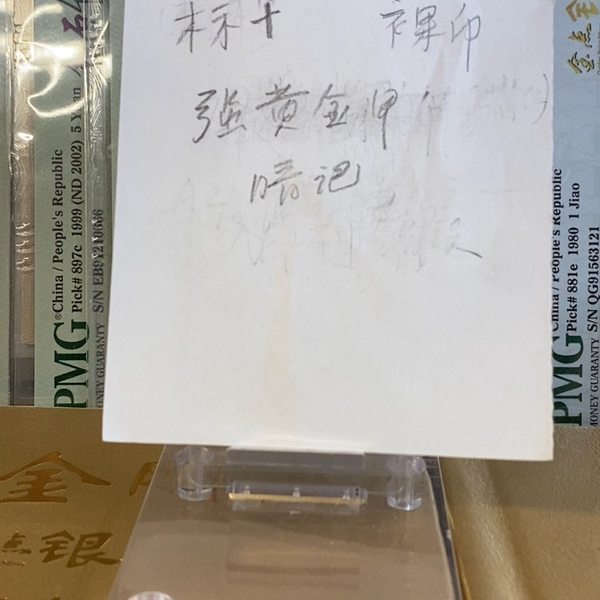 标十 裸印
强黄金甲
暗记
PMG
®China / People's Republic
Pick# 897c 1999 (ND 2002) 5 Yuan
MONEY GUARANTY S/N
PMG
®China / People's Republic
Pick# 881e 1980 1 Jiao
MONEY GUARANTY S/N QG91563121
金点金
金
点银